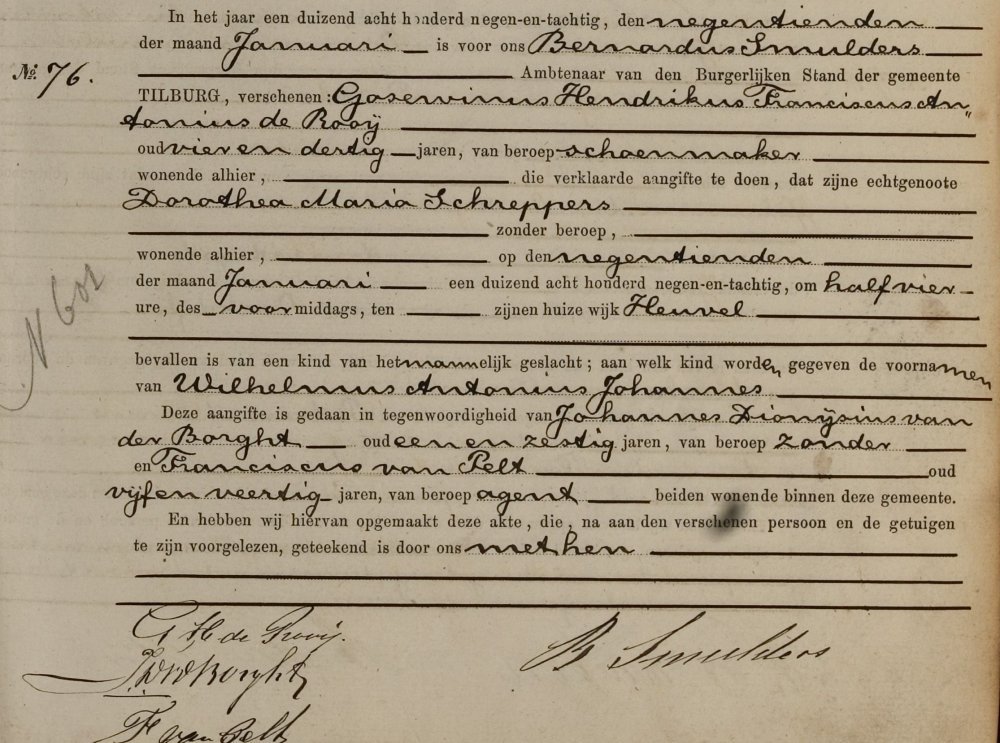 In het jaar een duizend acht honderd negen-en-tachtig, den negentienden
der maand Januari is voor ons Bernardus Smulders
No. 76.
Ambtenaar van den Burgerlijken Stand der gemeente
TILBURG, verschenen: Goserwinus Hendrikus Franciscus An„
tonius de Rooÿ
oud vier en dertig jaren, van beroep schoenmaker
wonende alhier, die verklaarde aangifte te doen, dat zijne echtgenoote
Dorothea Maria Schreppers
zonder beroep,
wonende alhier, op den negentienden
der maand Januari een duizend acht honderd negen-en-tachtig, om half vier
ure, des voormiddags, ten zijnen huize wijk Heuvel
bevallen is van een kind van het mannelijk geslacht; aan welk kind worden gegeven de voornamen
van Wilhelmus Antonius Johannes
Deze aangifte is gedaan in tegenwoordigheid van Johannes Dionÿsius van
der Borght oud een en zestig jaren, van beroep zonder
en Franciscus van Pelt oud
vijf en veertig jaren, van beroep agent beiden wonende binnen deze gemeente.
En hebben wij hiervan opgemaakt deze akte, die, na aan den verschenen persoon en de getuigen
te zijn voorgelezen, geteekend is door ons met hen
G H de Rooij.
B Smulders
J.D.v.d.Borght
F van Pelt